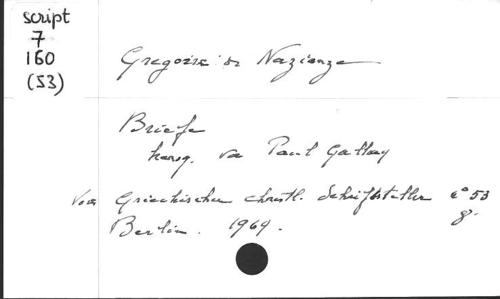 script
7
160
(53)
Grégoire de Nazianze
Briefe
herausg. von Paul Gallay
Voir Griechischen christl. Schriftsteller n° 53
Berlin. 1969.
8°